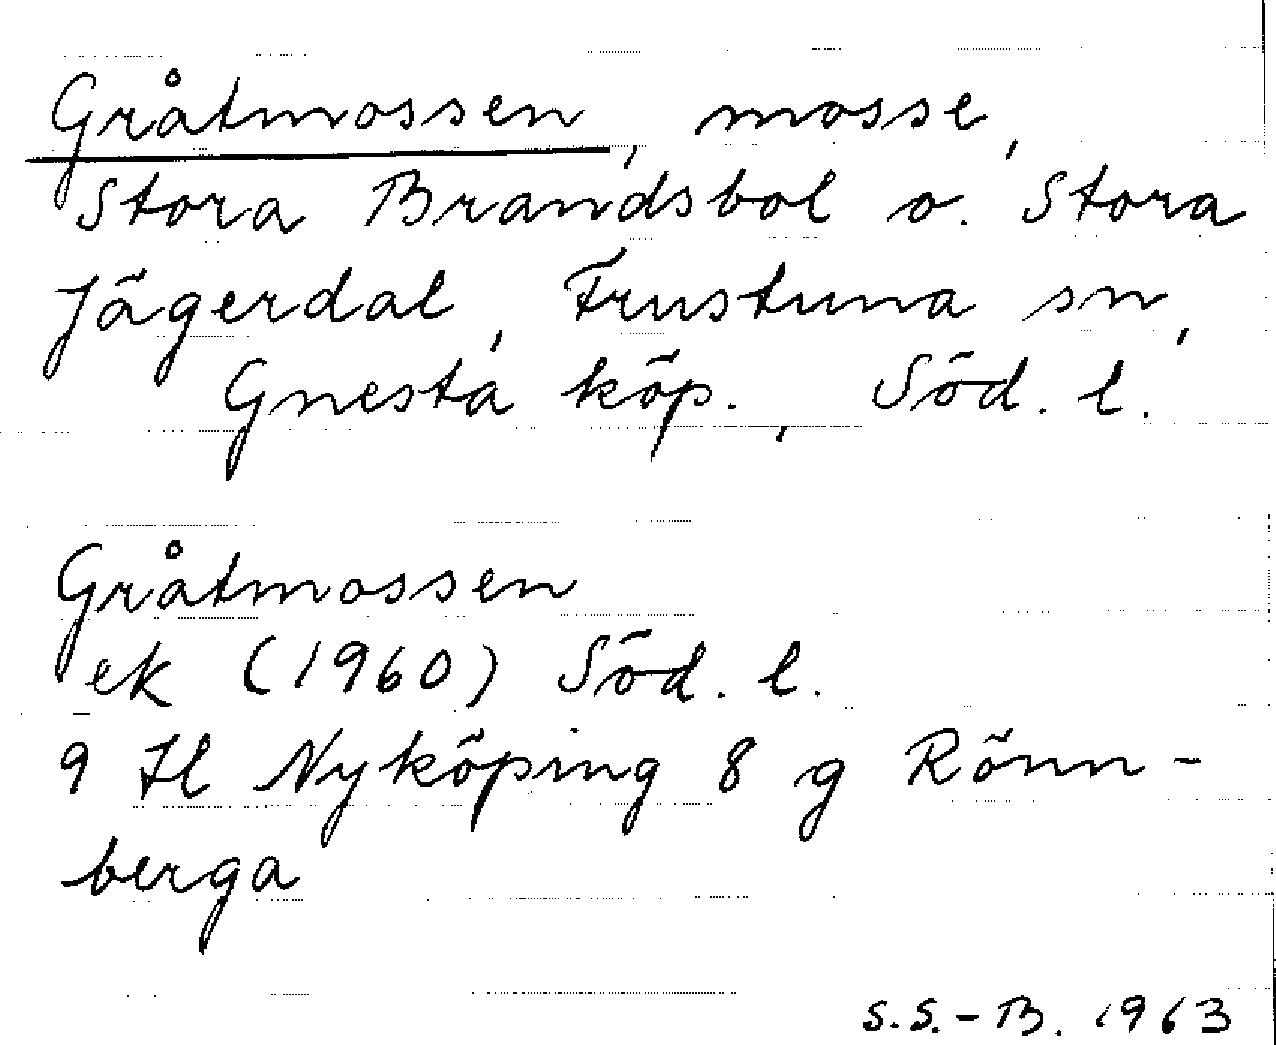 Gråtmossen, mosse,
Stora Brandsbol o. Stora
Jägerdal, Frustuna sn,
Gnesta köp., Söd. l.
Gråtmossen
ek (1960) Söd. l.
9 H Nyköping 8 g Rönn-
berga
S.S.-B. 1963